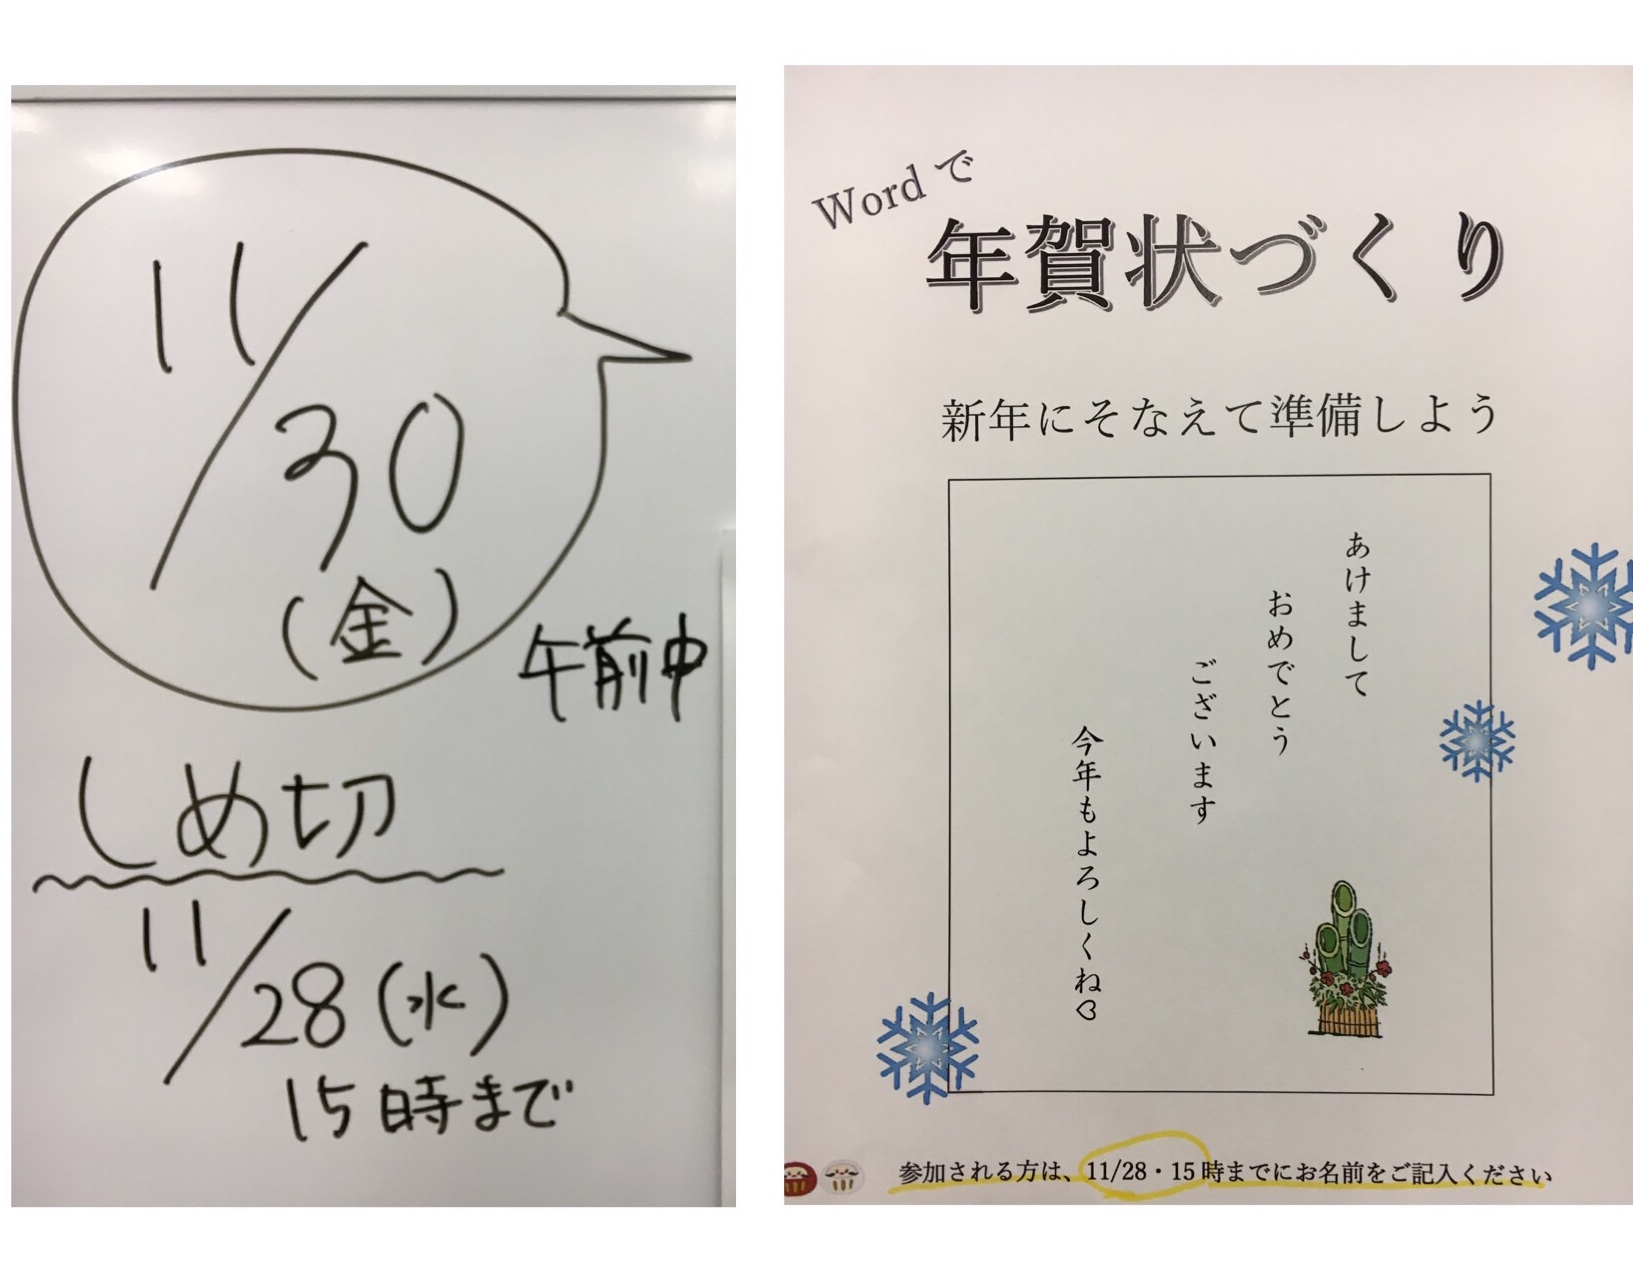 11/30
(金)
午前中
しめ切
11/28(水)
15時まで
Wordで
年賀状づくり
新年にそなえて準備しよう
あけまして
おめでとう
ございます
今年もよろしくね♡
参加される方は、11/28・15時までにお名前をご記入ください